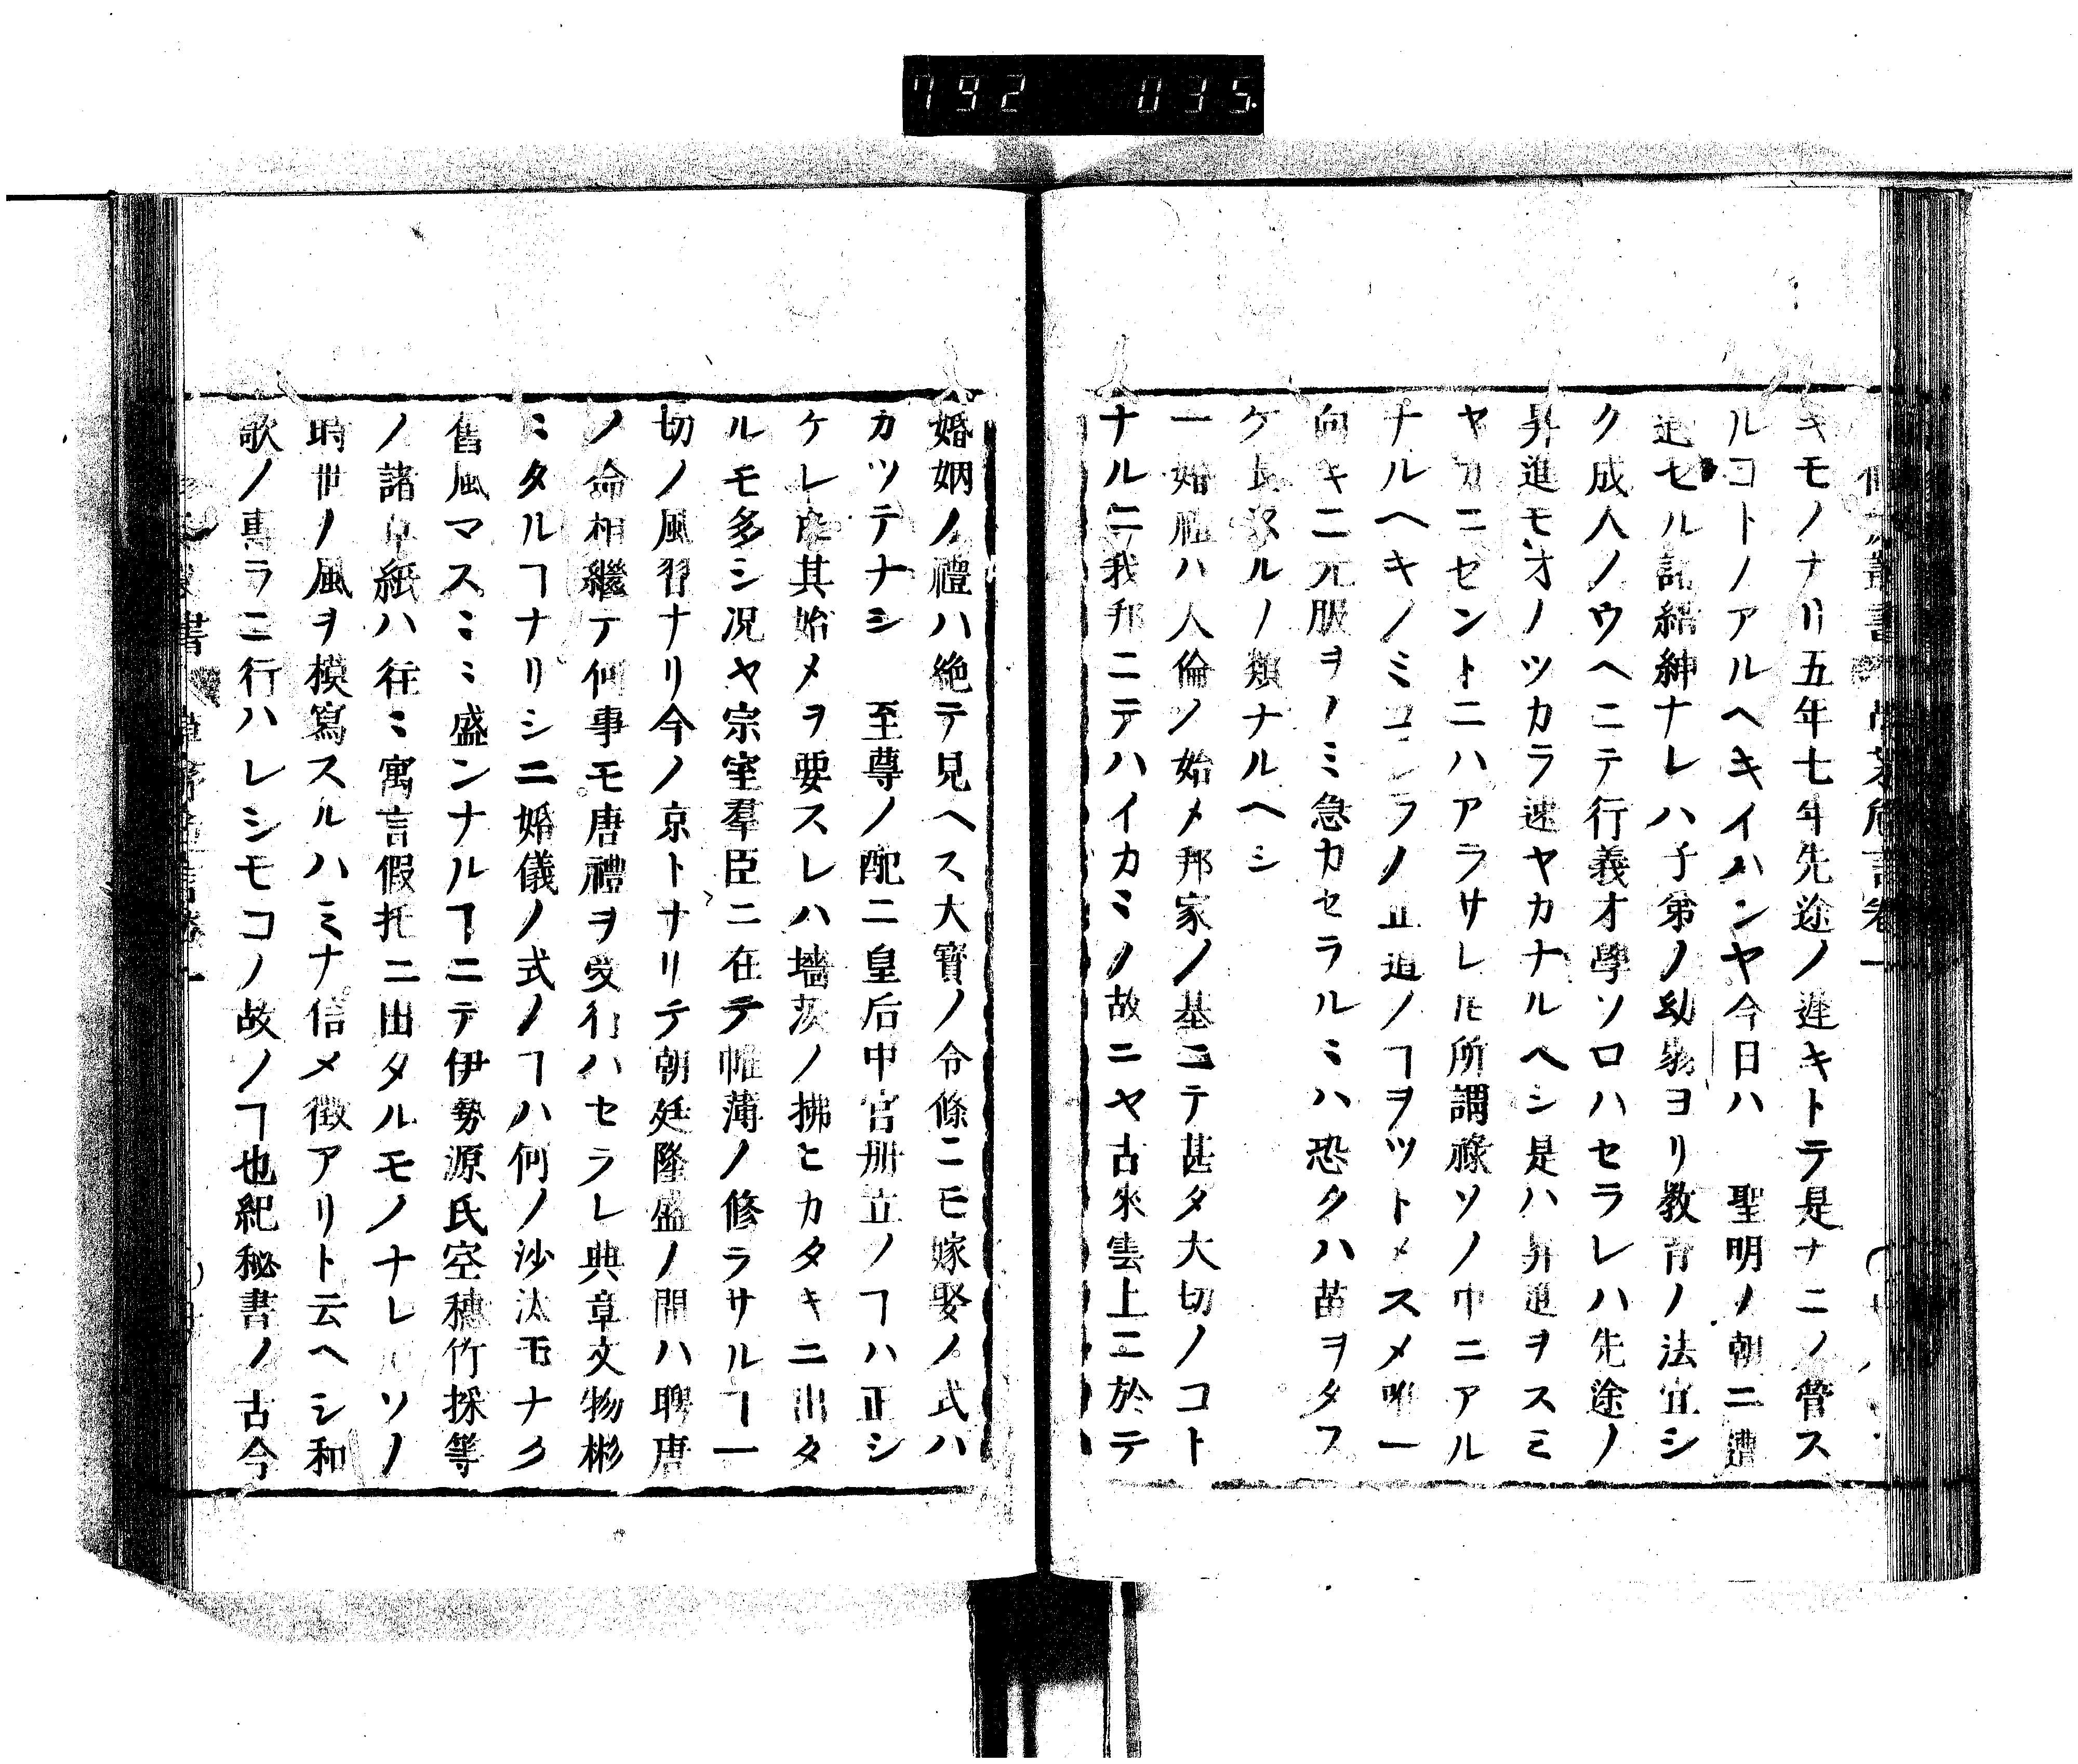 792 035
キモノナリ五年七年先途ノ遅キトテ是ナニノ管ス
ルコトノアルヘキイハンヤ今日ハ　聖明ノ朝ニ遭
逃セル諸縉紳ナレハ子弟ノ幼弱ヨリ教育ノ法宜シ
ク成人ノウヘニテ行義才學ソロハセラレハ先途ノ
昇進モオノツカラ速ヤカナルヘシ是ハ昇進ヲスミ
ヤカニセントニハアラサレ𪜈所謂祿ソノ中ニアル
ナルヘキノミコレラノ正道ノヿヲツトメスメ唯一
向キニ元服ヲノミ急カセラルミハ恐クハ苗ヲタス
ケ長スルノ類ナルヘシ
一婚禮ハ人倫ノ始メ邦家ノ基ニテ甚タ大切ノコト
ナルニ我邦ニテハイカミノ故ニヤ古來雲上ニ於テ
婚姻ノ禮ハ絶テ見ヘス大寳ノ令條ニモ嫁娶ノ式ハ
カツテナシ　至尊ノ配ニ皇后中宮册立ノヿハ正シ
ケレ𪜈其始メヲ要スレハ墻茨ノ拂ヒカタキニ出タ
ルモ多シ况ヤ宗室羣臣ニ在テ帷薄ノ修ラサルヿ一
切ノ風習ナリ今ノ京トナリテ朝廷隆盛ノ間ハ聘唐
ノ命相繼テ何事モ唐禮ヲ受行ハセラレ典章文物彬
ミタルヿナリシニ婚儀ノ式ノヿハ何ノ沙汰モナク
舊風マスミミ盛ンナルヿニテ伊勢源氏空穗竹採等
ノ諸草紙ハ徃ミ寓言假托ニ出タルモノナレ𪜈ソノ
時世ノ風ヲ模寫スルハミナ信メ徴アリト云ヘシ和
歌ノ專ラニ行ハレシモコノ故ノヿ也紀秘書ノ古今